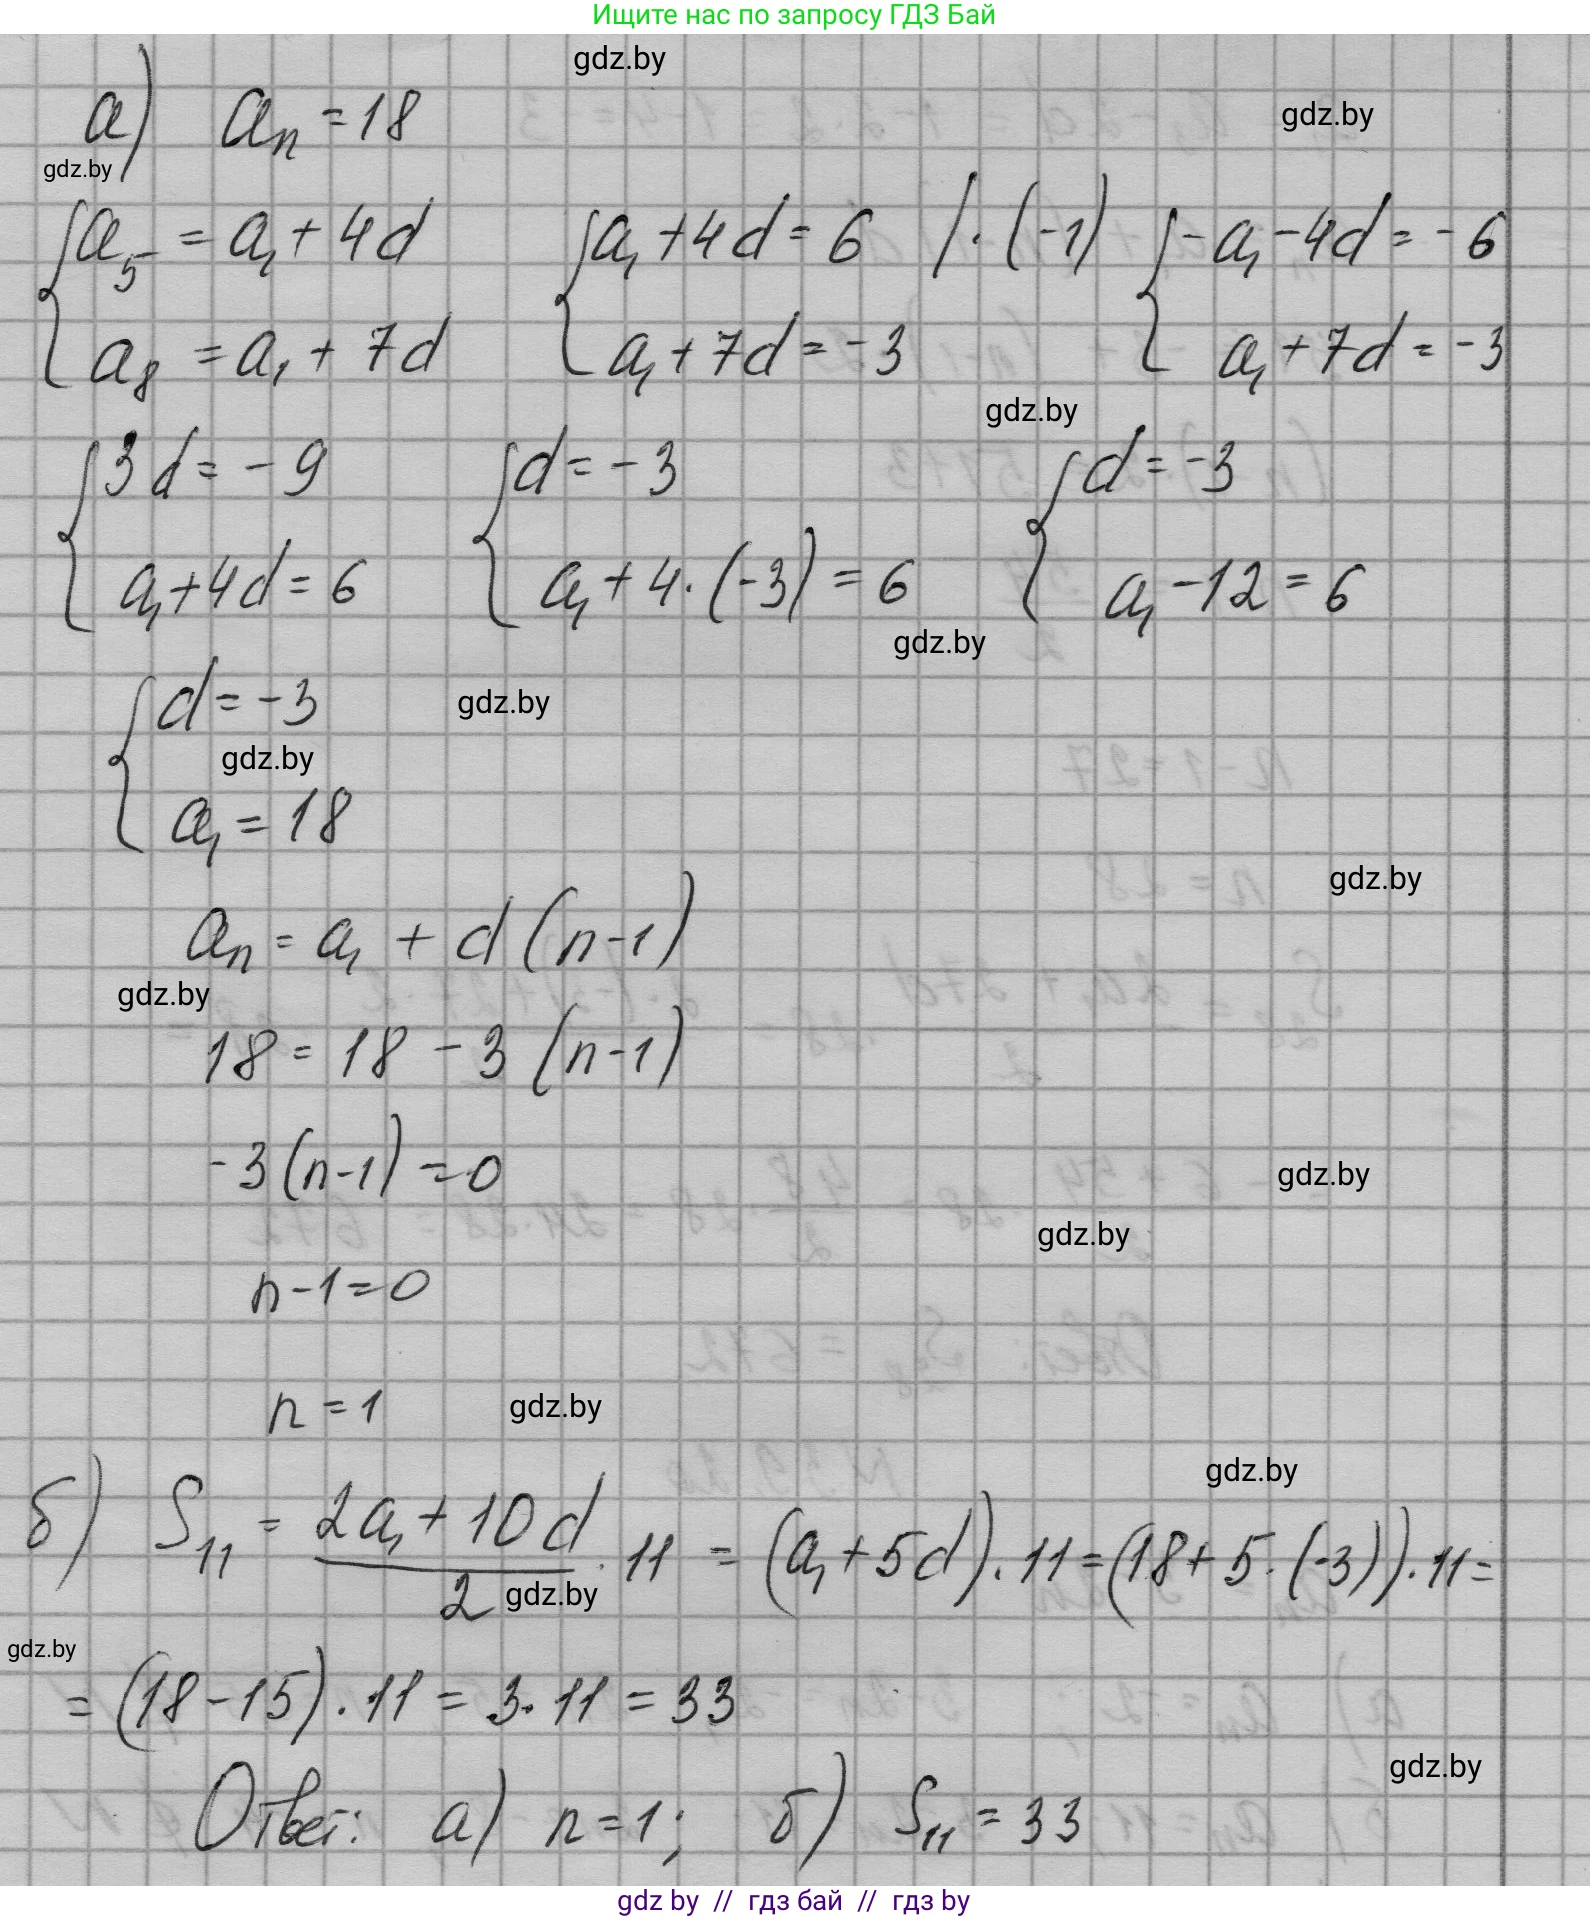 Ищите нас по запросу ГДЗ Бай
gdz.by
а) aₙ = 18
gdz.by
gdz.by
{ a₅ = a₁ + 4d { a₁ + 4d = 6 /·(-1) { -a₁ - 4d = -6
a₈ = a₁ + 7d a₁ + 7d = -3 a₁ + 7d = -3
gdz.by
{ 3d = -9 { d = -3 { d = -3
a₁ + 4d = 6 a₁ + 4·(-3) = 6 a₁ - 12 = 6
gdz.by
{ d = -3
gdz.by
gdz.by
a₁ = 18
gdz.by
aₙ = a₁ + d(n-1)
gdz.by
18 = 18 - 3(n-1)
-3(n-1) = 0
gdz.by
gdz.by
n - 1 = 0
n = 1
gdz.by
gdz.by
б) S₁₁ = (2a₁ + 10d)/2 · 11 = (a₁ + 5d)·11 = (18 + 5·(-3))·11 =
gdz.by
gdz.by
= (18 - 15)·11 = 3·11 = 33
gdz.by
Ответ: а) n = 1; б) S₁₁ = 33
gdz by // гдз бай // гдз by